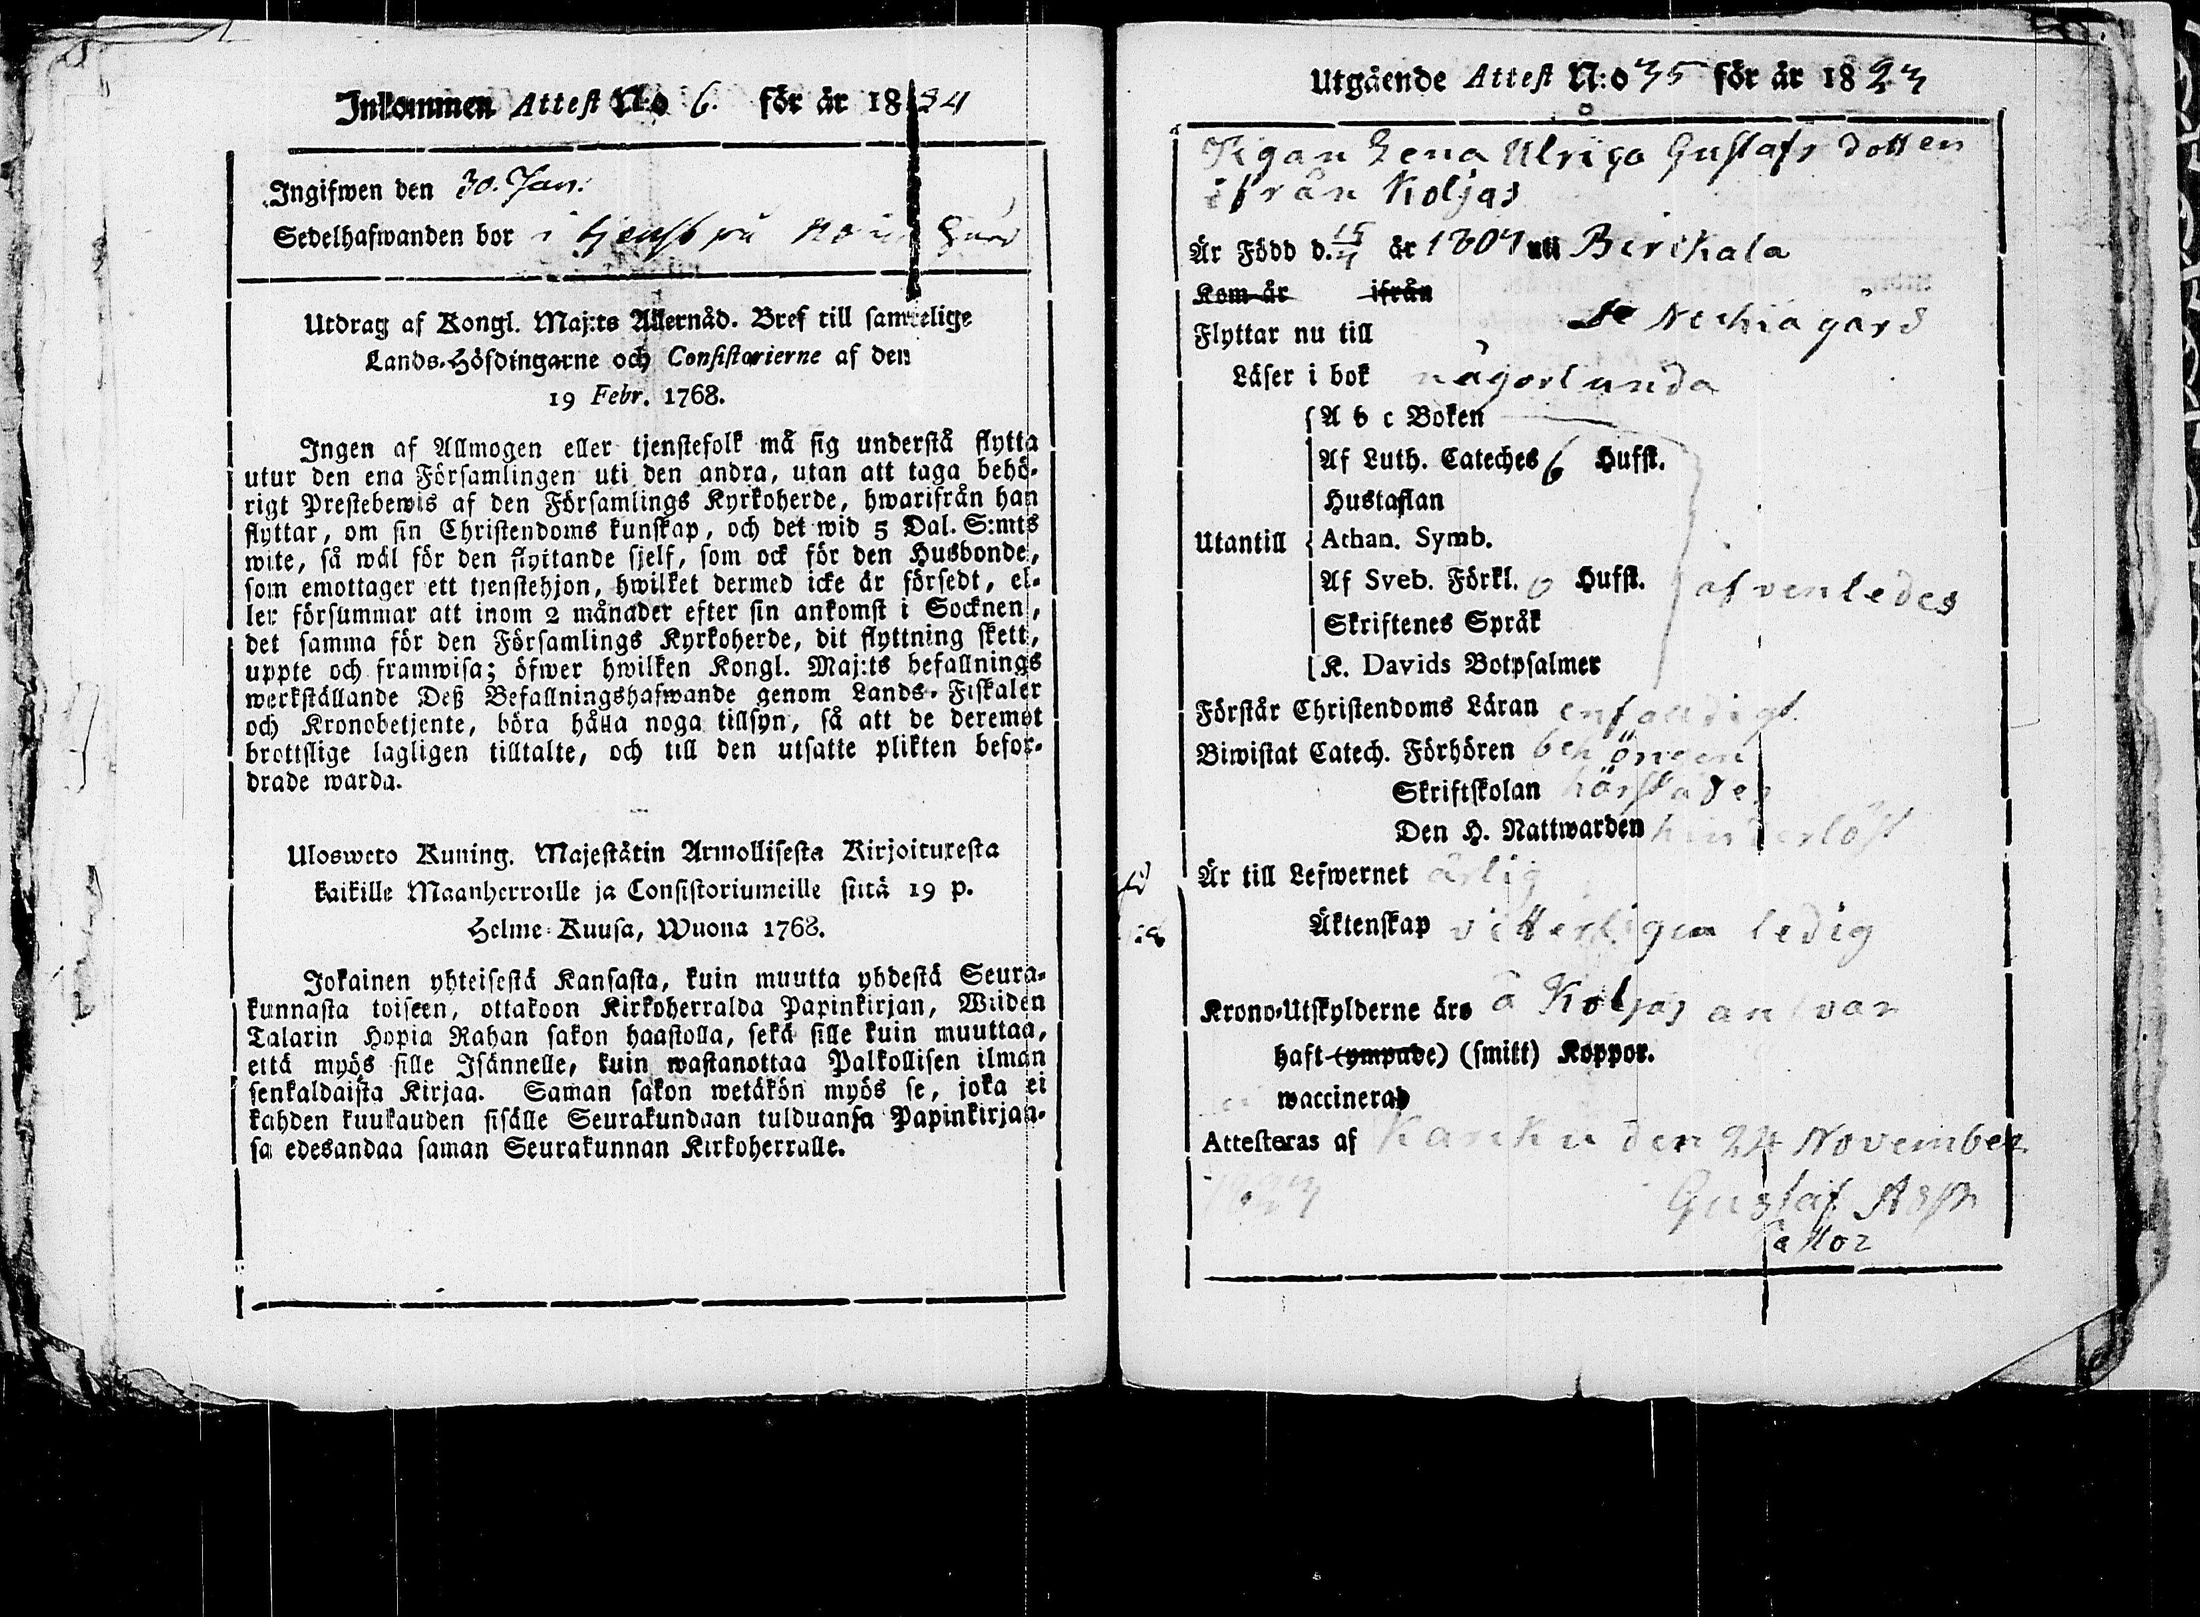 Inkommen Attest N:o 6. för år 1824
Ingifwen den 30. Jan:
Sedelhafwanden bor i tjenst på Gård
Utdrag af Kongl. Maj:ts Allernåd. Bref till samtelige
Lands-Höfdingarne och Consistorierne af den
19 Febr. 1768.
Ingen af Allmogen eller tjenstefolk må sig understå flytta
utur den ena Församlingen uti den andra, utan att taga behö-
rigt Prestebewis af den Församlings Kyrkoherde, hwarifrån han
flyttar, om sin Christendoms kunskap, och det wid 5 Dal. S:mts
wite, så wäl för den flyttande sjelf, som ock för den Husbonde,
som emottager ett tjenstehjon, hwilket dermed icke är försedt, el-
ler försummar att inom 2 månader efter sin ankomst i Socknen,
det samma för den Församlings Kyrkoherde, dit flyttning skett,
uppte och framwisa; öfwer hwilken Kongl. Maj:ts befallnings
werkställande Deß Befallningshafwande genom Lands-Fiskaler
och Kronobetjente, böra hålla noga tillsyn, så att de deremot
brottslige lagligen tilltalte, och till den utsatte plikten befor-
drade warda.
Ulosweto Kuning. Majestätin Armollisesta Kirjoituxesta
kaikille Maanherroille ja Consistoriumeille siitä 19 p.
Helme-Kuusa, Wuona 1768.
Jokainen yhteisestä Kansasta, kuin muutta yhdestä Seura-
kunnasta toiseen, ottakoon Kirkoherralda Papinkirjan, Wiiden
Talarin Hopia Rahan sakon haastolla, sekä sille kuin muuttaa,
että myös sille Isännelle, kuin wastanottaa Palkollisen ilman
senkaldaista Kirjaa. Saman sakon wetäkön myös se, joka ei
kahden kuukauden sisälle Seurakundaan tulduansa Papinkirjaa-
sa edesandaa saman Seurakunnan Kirkoherralle.
Utgående Attest N:o 35 för år 1823
Pigan Lena Ulrica Gustafs dotter
ifrån Koljas
Är Född d. 15/4 år 1804 uti Birckala
Kom år ifrån
Flyttar nu till gård
Läser i bok någorlunda
A b c Boken
Af Luth. Cateches 6 Hufst.
Hustaflan
Utantill Athan. Symb.
Af Sveb. Förkl. 0 Hufst. äfvenledes
Skriftenes Språk
K. Davids Botpsalmer
Förstår Christendoms Läran enfaldigt
Biwistat Catech. Förhören behörigen
Skriftskolan härstädes
Den H. Nattwarden hinderlöst
Är till Lefwernet ärlig
Äktenskap vitterligen ledig
Krono-Utskylderne äro å Koljas ansvar
haft (ympade) (smitt) Koppor.
waccinerad
Attesteras af Karku den 24 November
1823
Gustaf